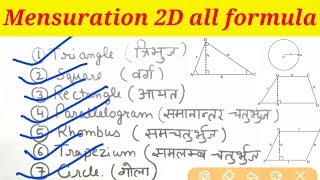 Mensuration 2D all formula
① Triangle (त्रिभुज)
② Square (वर्ग)
③ Rectangle (आयत)
④ Parallelogram (समानान्तर चतुर्भुज)
⑤ Rhombus (समचतुर्भुज)
⑥ Trapezium (समलम्ब चतुर्भुज)
⑦ Circle. (गोला)